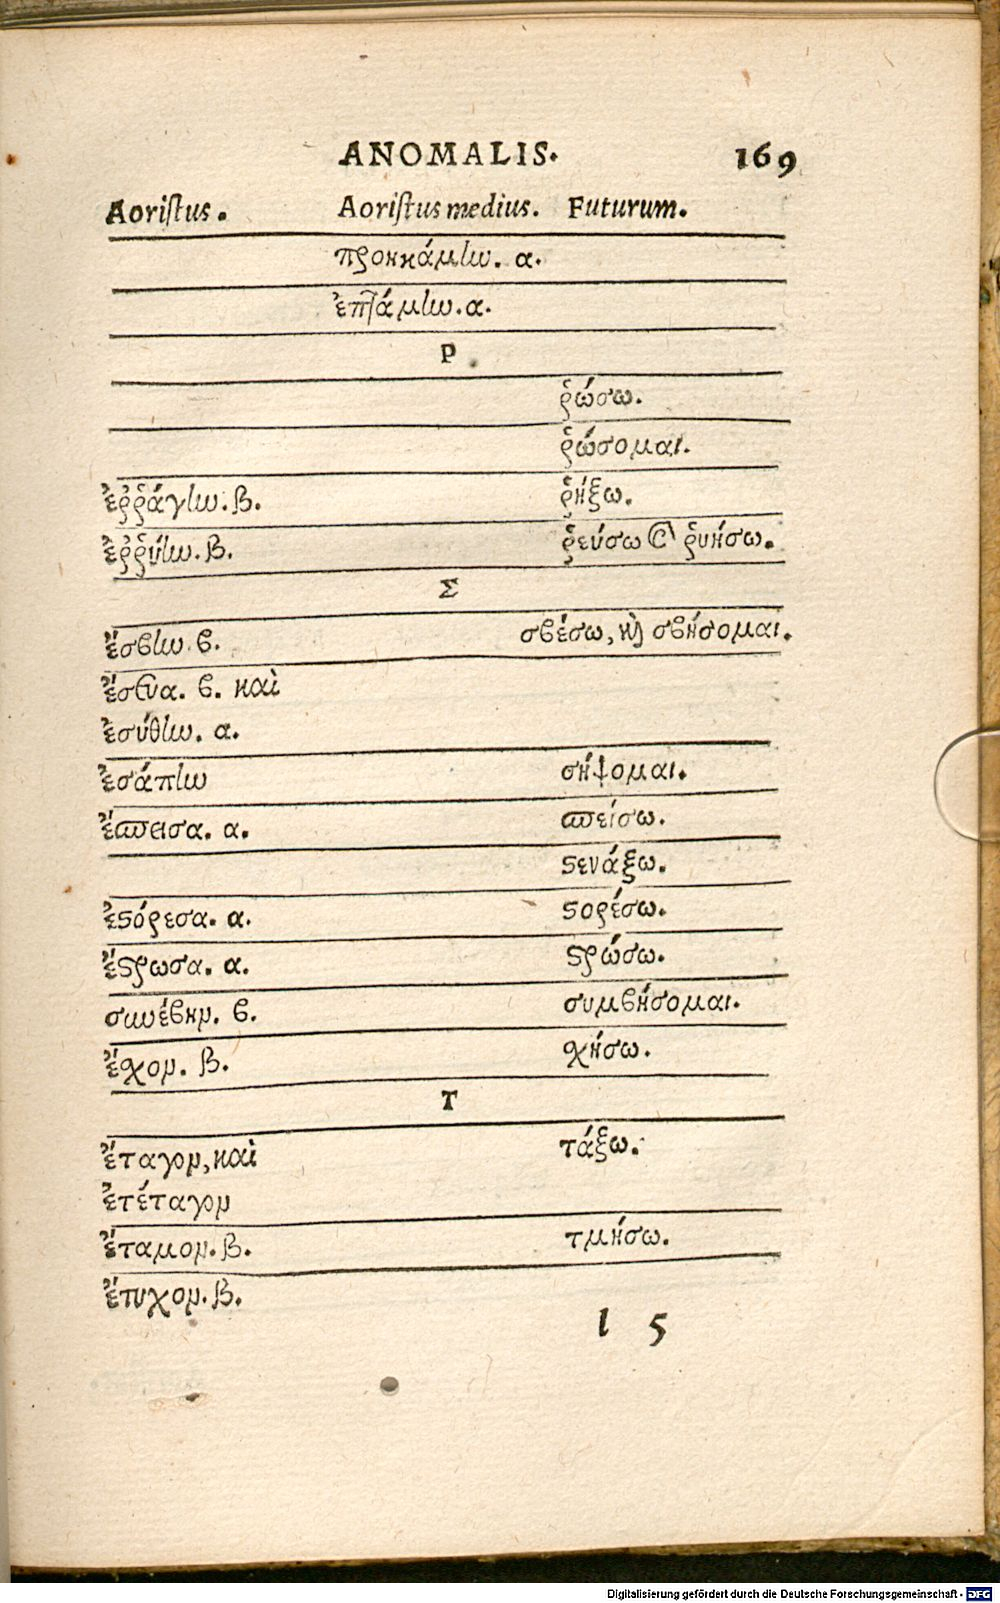 ANOMALIS. 169
Aoristus. Aoristus medius. Futurum.
προηκάμην. α.
ἐπτάμην. α.
Ρ
ῥώσω.
ῥώσομαι.
ἐῤῥάγην. β. ῥήξω.
ἐῤῥύην. β. ῥεύσω & ῥυήσω.
Σ
ἔσβην. β. σβέσω, καὶ σβήσομαι.
ἔσευα. β. καὶ
ἐσύθην. α.
ἐσάπην σήψομαι.
ἔσπεισα. α. σπείσω.
στενάξω.
ἐστόρεσα. α. στορέσω.
ἔστρωσα. α. στρώσω.
συνέβην. β. συμβήσομαι.
ἔχον. β. χήσω.
Τ
ἔταγον, καὶ τάξω.
ἐτέταγον
ἔταμον. β. τμήσω.
ἔτυχον. β.
l 5
Digitalisierung gefördert durch die Deutsche Forschungsgemeinschaft - DFG